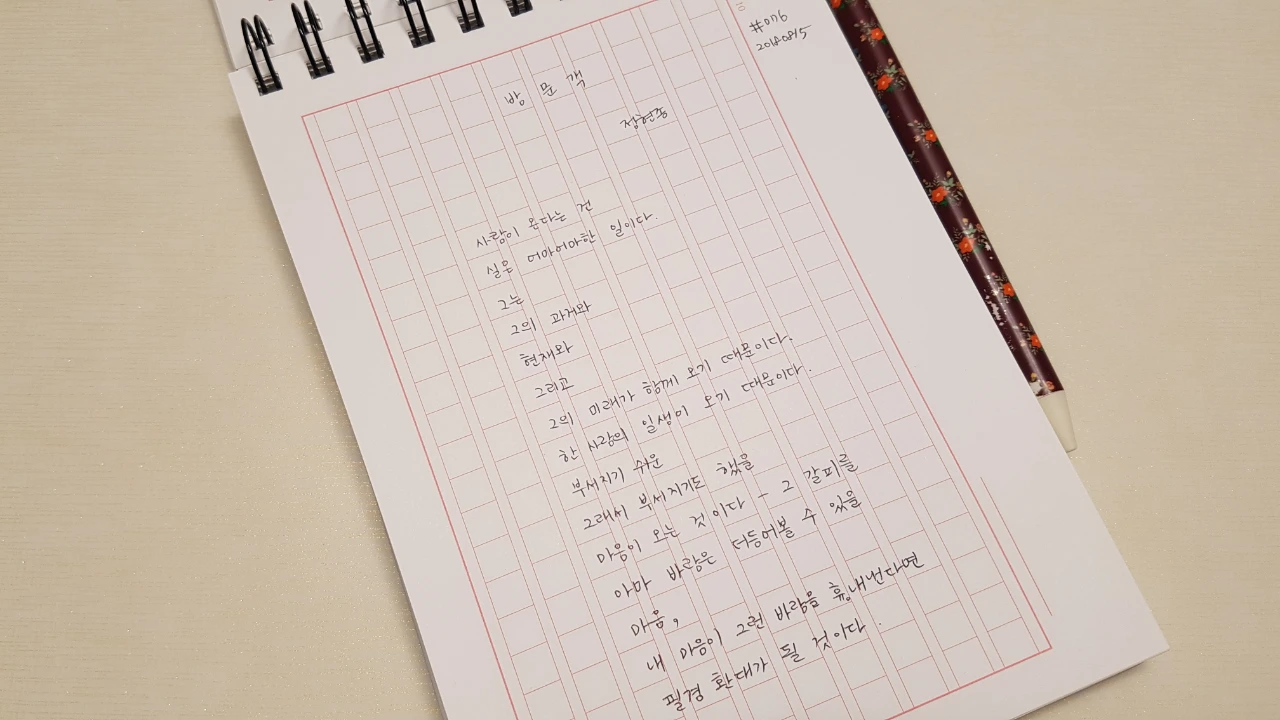 #076
20180815
방문객
정현종
사람이 온다는 건
실은 어마어마한 일이다.
그는
그의 과거와
현재와
그리고
그의 미래가 함께 오기 때문이다.
한 사람의 일생이 오기 때문이다.
부서지기 쉬운
그래서 부서지기도 했을
마음이 오는 것이다 - 그 갈피를
아마 바람은 더듬어볼 수 있을
마음,
내 마음이 그런 바람을 흉내낸다면
필경 환대가 될 것이다.